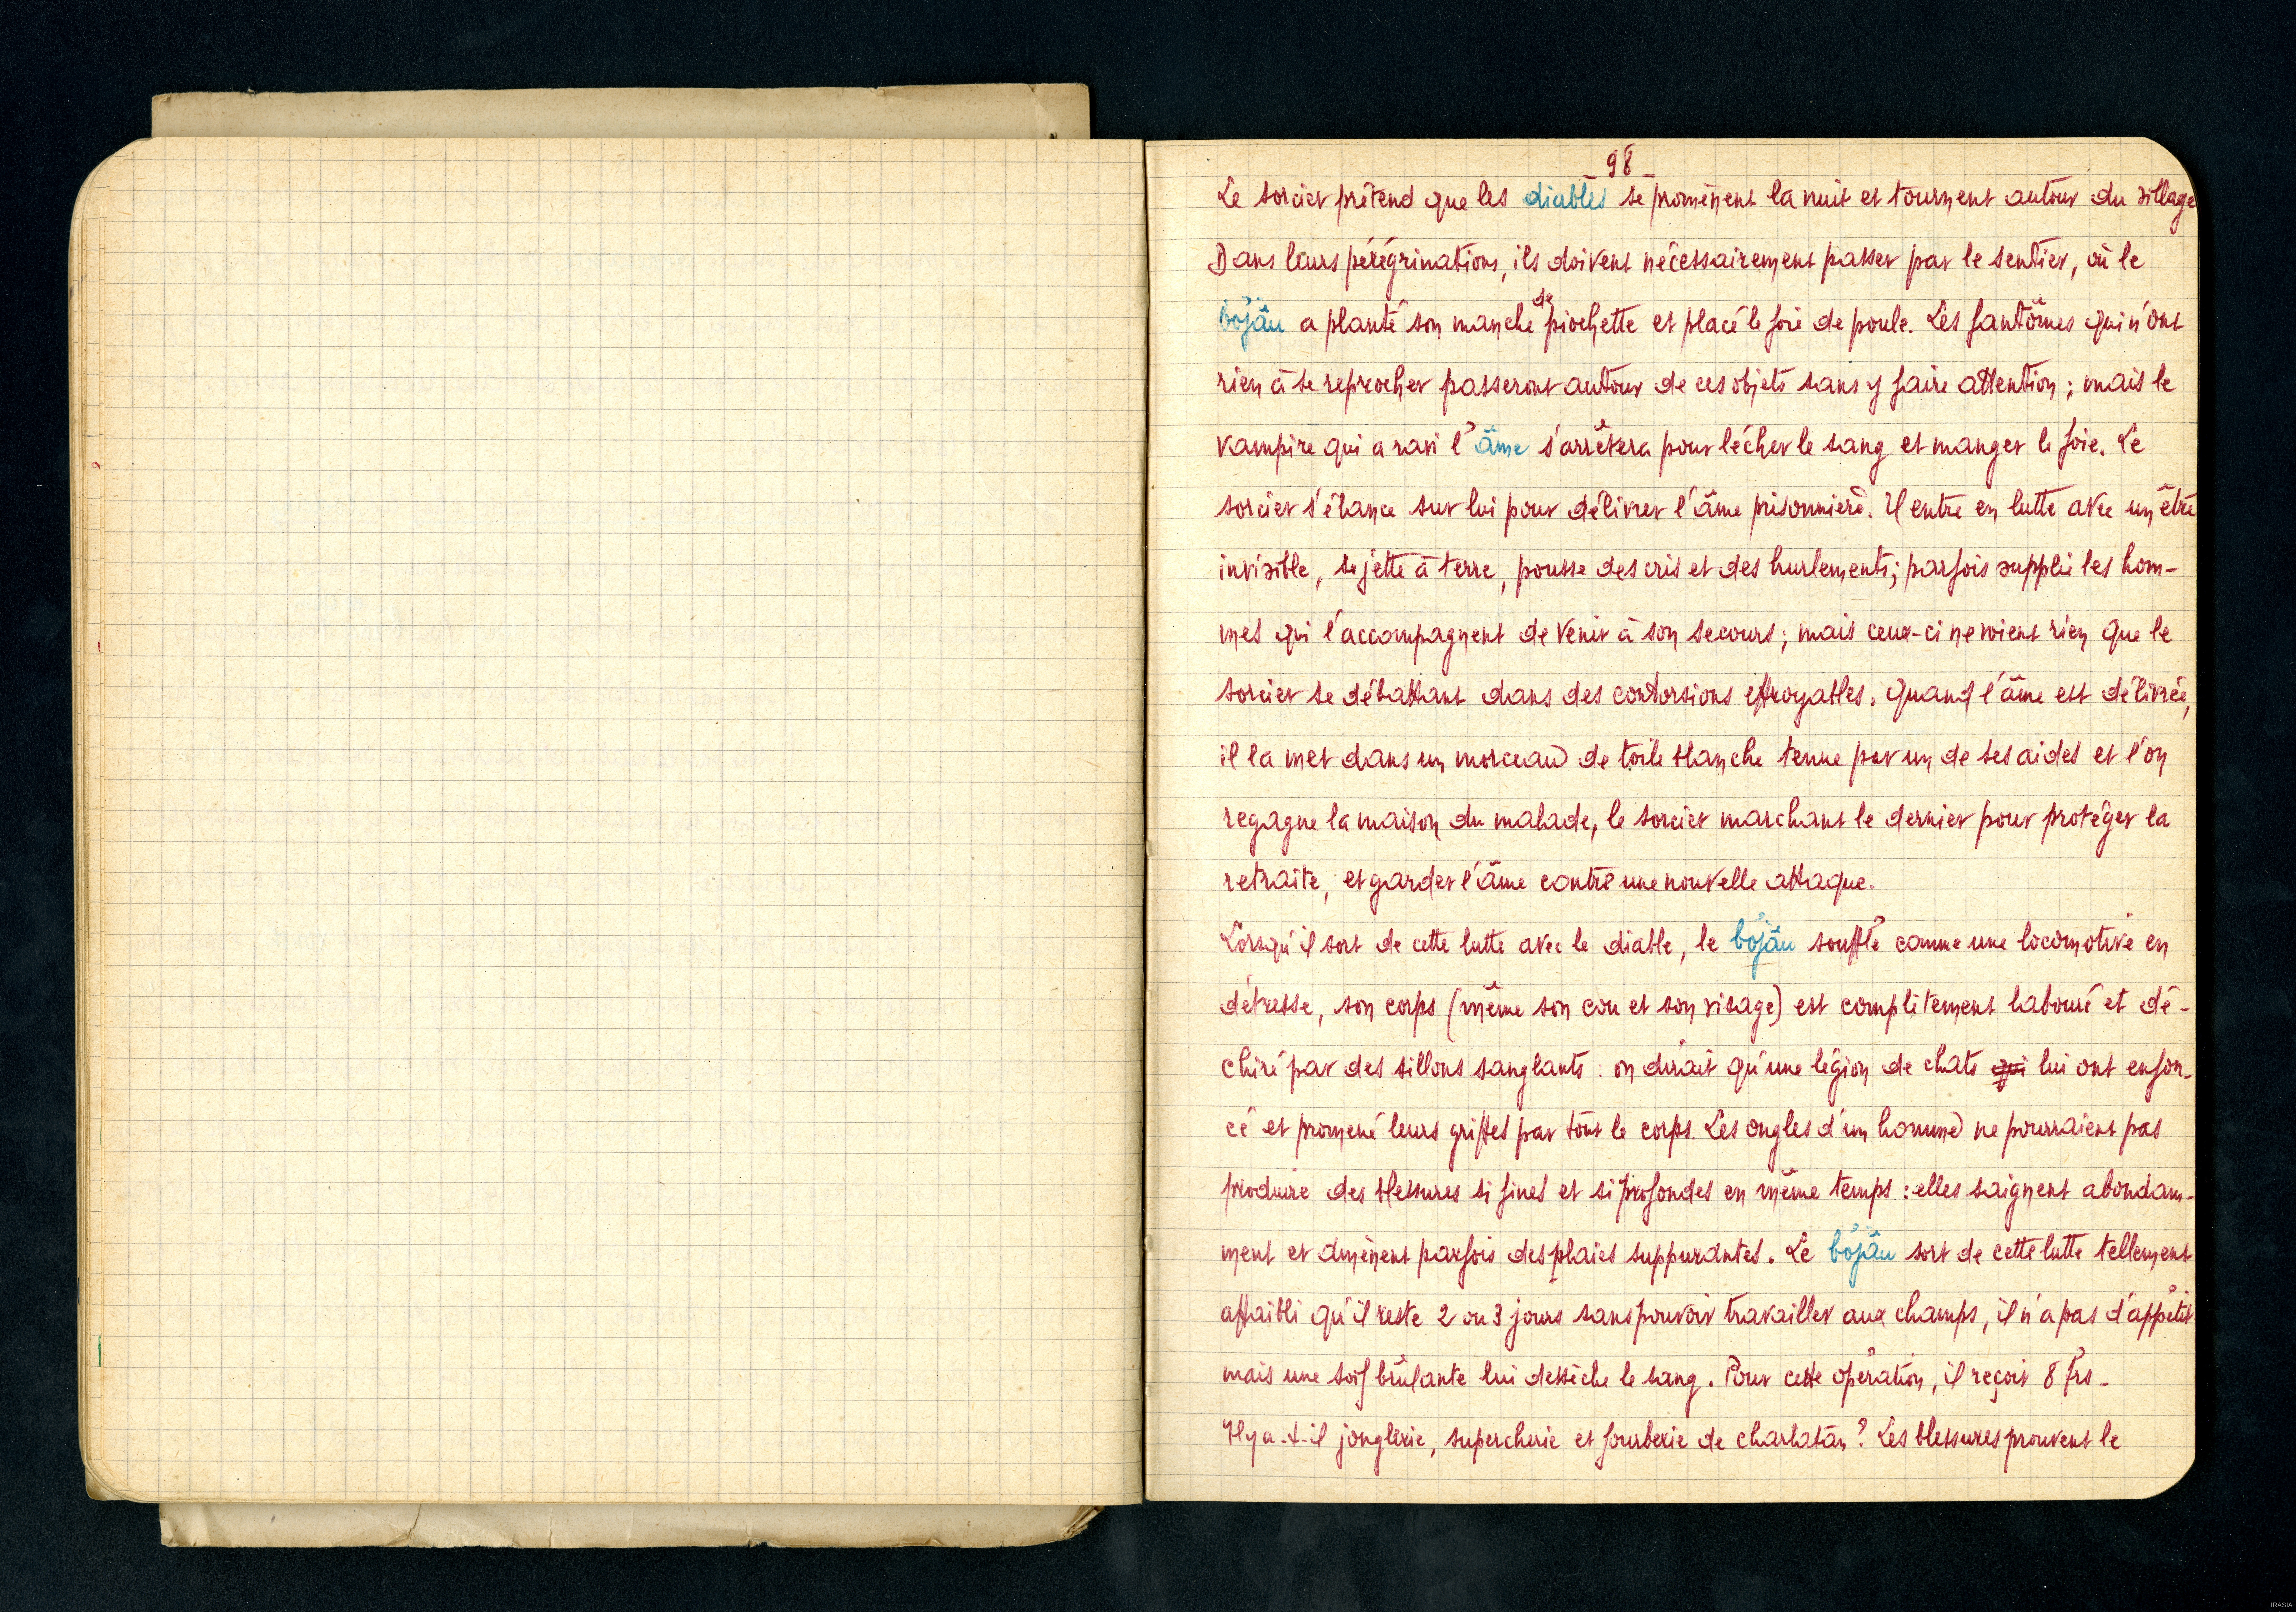 - 98 -
Le sorcier prétend que les diables se promènent la nuit et tournent autour du village
Dans leurs pérégrinations, ils doivent nécessairement passer par le sentier, où le
bơjâu a planté son manche de piochette et placé le foie de poule. Les fantômes qui n'ont
rien à se reprocher passeront autour de ces objets sans y faire attention ; mais le
vampire qui a ravi l'âme s'arrêtera pour lécher le sang et manger le foie. Le
sorcier s'élance sur lui pour délivrer l'âme prisonnière. Il entre en lutte avec un être
invisible, se jette à terre, pousse des cris et des hurlements; parfois supplie les hom-
mes qui l'accompagnent de venir à son secours ; mais ceux-ci ne voient rien que le
sorcier se débattant dans des contorsions effroyables. Quand l'âme est délivrée,
il la met dans un morceau de toile blanche tenue par un de ses aides et l'on
regagne la maison du malade, le sorcier marchant le dernier pour protéger la
retraite, et garder l'âme contre une nouvelle attaque.
Lorsqu'il sort de cette lutte avec le diable, le bơjâu souffle comme une locomotive en
détresse, son corps (même son cou et son visage) est complètement labouré et dé-
chiré par des sillons sanglants : on dirait qu'une légion de chats qui lui ont enfon-
cé et promené leurs griffes par tout le corps. Les ongles d'un homme ne pourraient pas
produire des blessures si fines et si profondes en même temps : elles saignent abondam-
ment et amènent parfois des plaies suppurantes. Le bơjâu sort de cette lutte tellement
affaibli qu'il reste 2 ou 3 jours sans pouvoir travailler aux champs, il n'a pas d'appétit
mais une soif brûlante lui dessèche le sang. Pour cette opération, il reçoit 8 frs.
Il y a-t-il jonglerie, supercherie et fourberie de charlatan ? Les blessures prouvent le
IRASIA